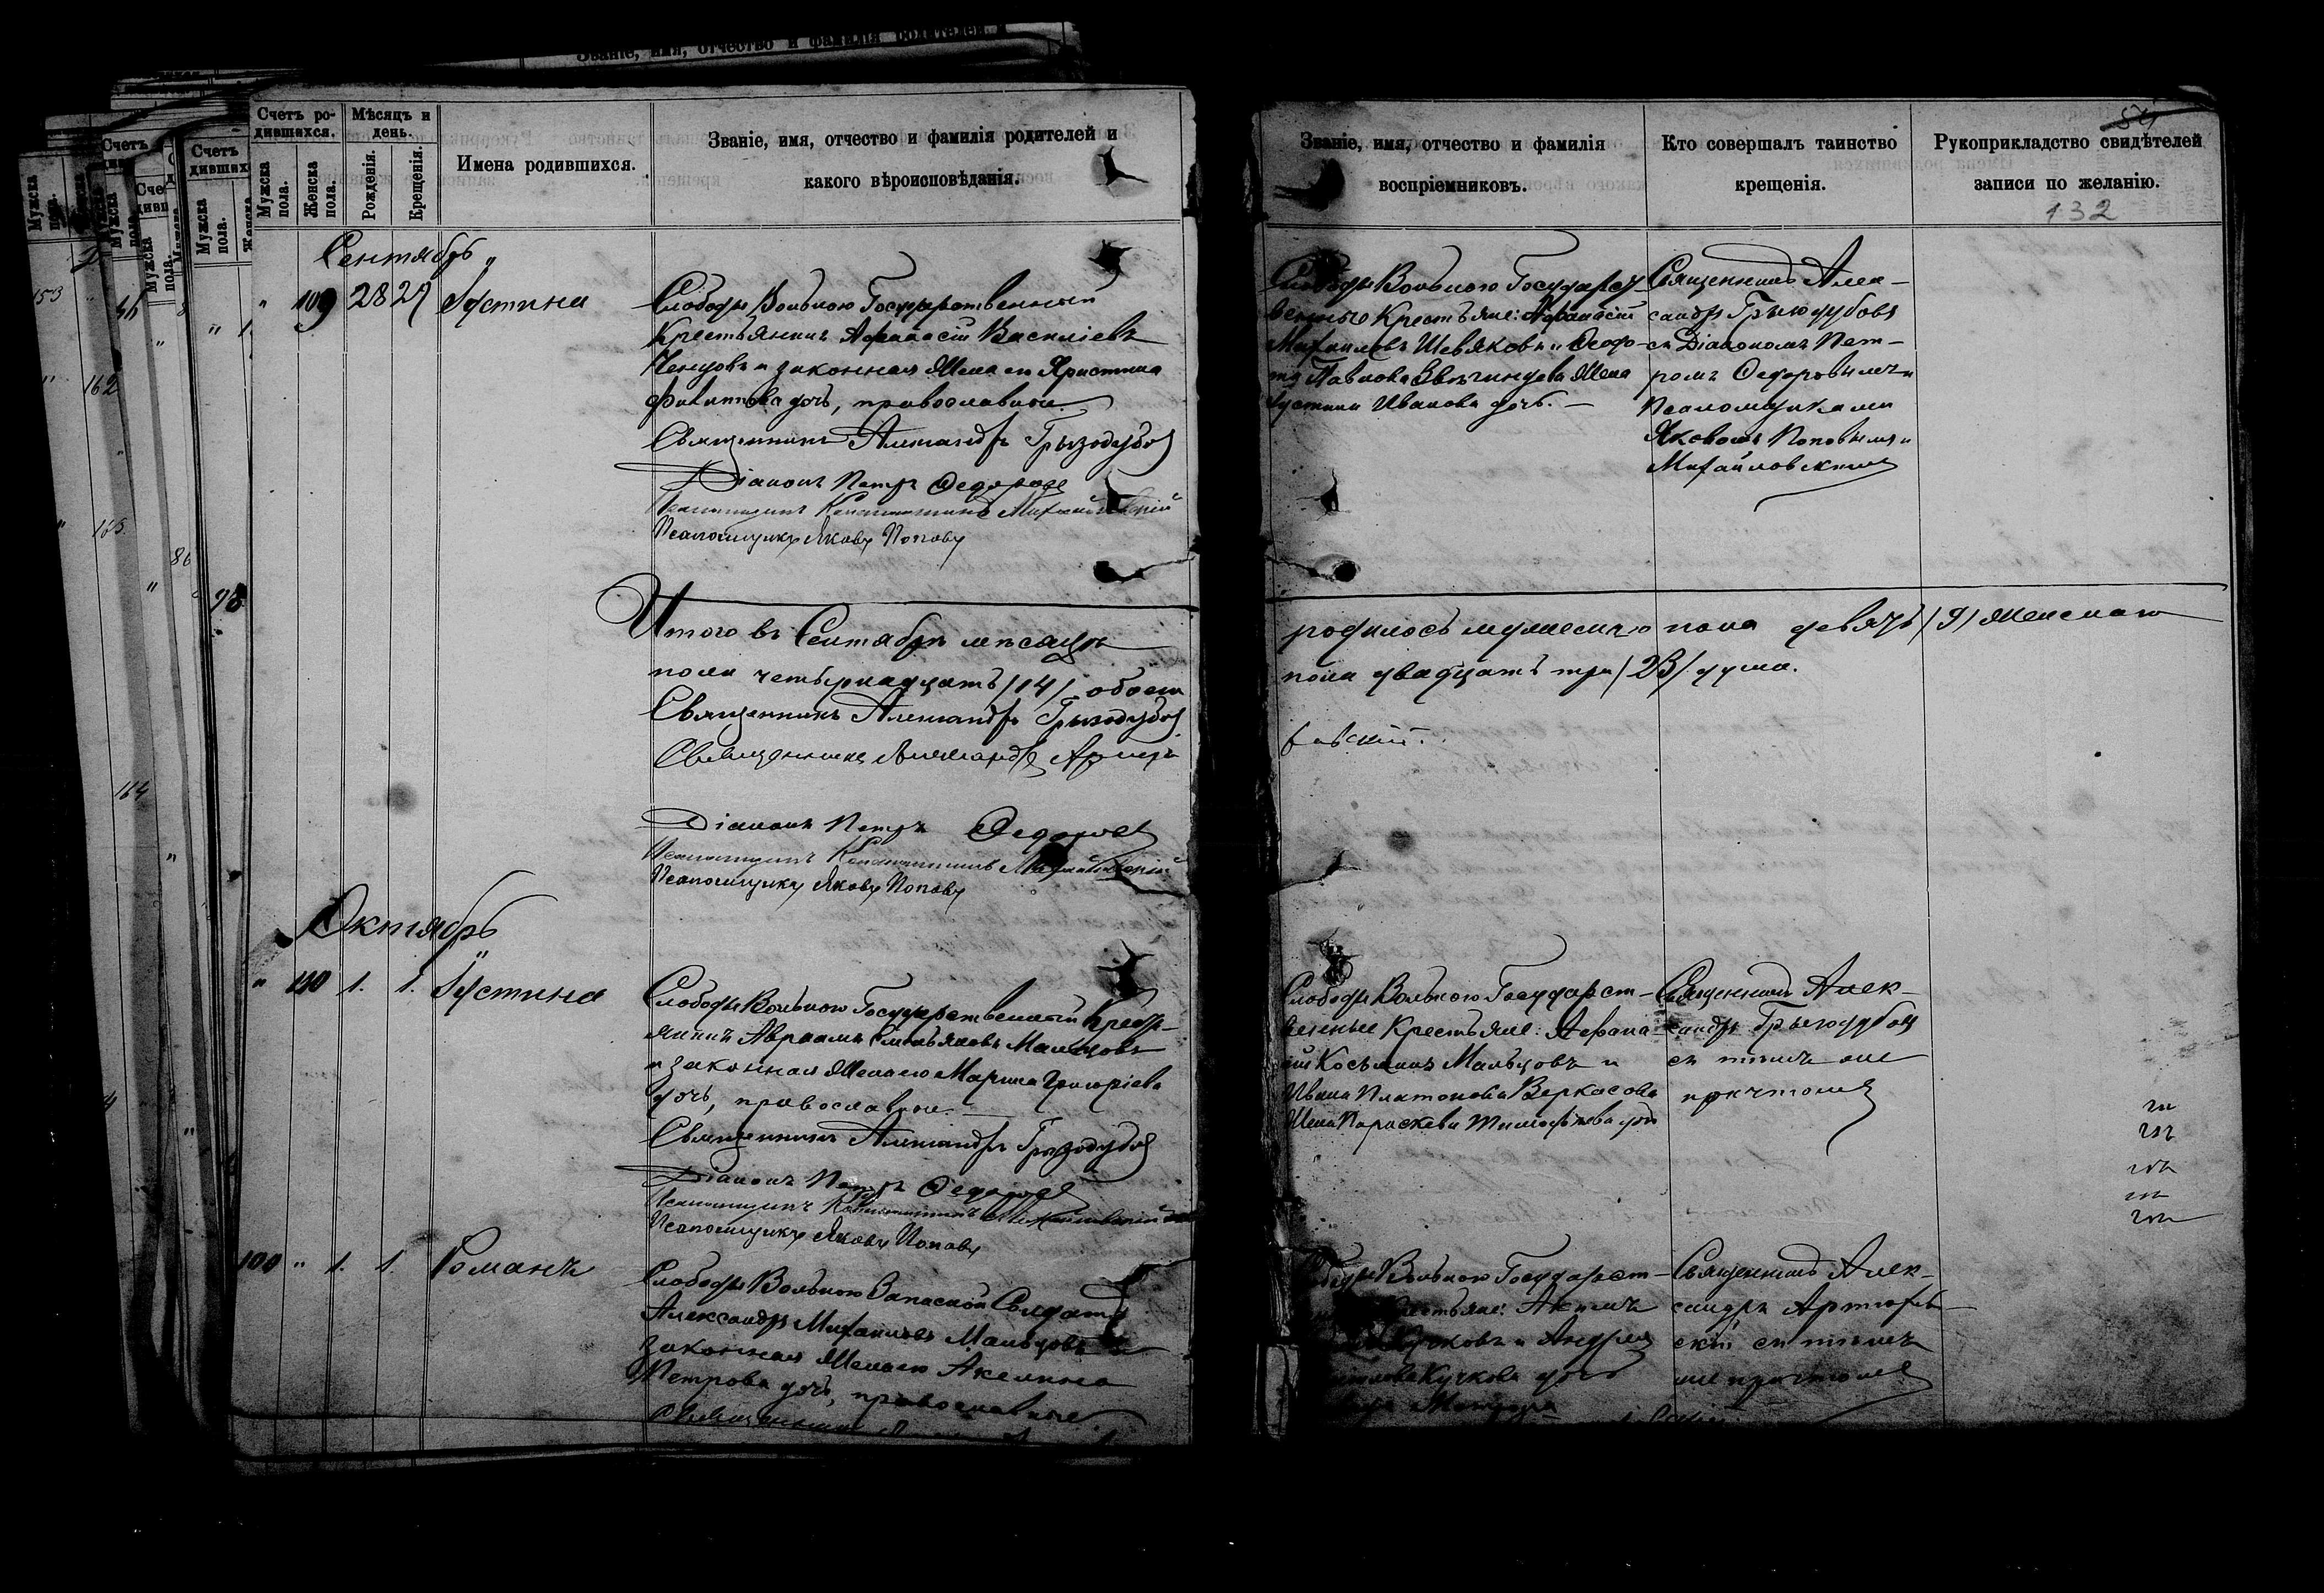 Званіе, имя, отчество и фамилія родителей и
Счетъ ро-
дившихся.
Мѣсяцъ и
день.
Мужска
пола.
Женска
пола.
Рожденія.
Крещенія.
Имена родившихся.
Званіе, имя, отчество и фамилія родителей и
какого вѣроисповѣданія.
Сентябрь
" 109 28 29 Іустина
Слободы Вольною Государственный
Крестьянинъ Афанасій Василіевъ
и законная Жена его Христина
Филиппова дочь, православные.
Священникъ Александръ Грызодубов
Діаконъ Петръ Федоров
Псаломщикъ Константинъ Михайловскій
Псаломщикъ Яковъ Поповъ
Итого въ Сентябрѣ мѣсяцѣ
пола четырнадцать /14/ обоего
Священникъ Александръ Грызодубов
Священникъ Александръ Артюх
Діаконъ Петръ Федоров
Псаломщикъ Константинъ Михайловскій
Псаломщикъ Яковъ Поповъ
Октябрь
" 110 1. 1. Іустина
Слободы Вольною Государственный Кресть-
янинъ Авраамъ Емельяновъ Мальцовъ
и законная Жена его Марина Григоріева
дочь, православные.
Священникъ Александръ Грызодубов
Діаконъ Петръ Федоров
Псаломщикъ Константинъ Михайловскій
Псаломщикъ Яковъ Поповъ
100 " 1. 1. Романъ
Слободы Вольною Запасной Солдатъ
Александръ Михаиловъ Мальцовъ и
законная Жена его Акелина
Петрова дочь, православные
Священникъ
54
Званіе, имя, отчество и фамилія
воспріемниковъ.
Кто совершалъ таинство
крещенія.
Рукоприкладство свидѣтелей
записи по желанію.
132
Слободы Вольною Государст-
венные Крестьяне: Афанасій
Михаиловъ Шевяковъ и Федо-
та Павлова Жена
Іустина Иванова дочь.
Священникъ Алек-
сандръ Грызодубовъ
съ Діакономъ Пет-
ромъ Федоровымъ и
Псаломщиками
Яковомъ Поповымъ и
Михайловскимъ
родилось мужескаго пола девять /9/ Женскаго
пола двадцать три /23/ душа.
евскій.
Слободы Вольною Государст-
венные Крестьяне: Афана-
сій Косьминъ Мальцовъ и
Ивана Платонова Веркасова
Жена Параскева Тимофѣева дочь
Священникъ Алек-
сандръ Грызодубов
съ тѣмъ же
причтомъ
Слободы Вольною Государст-
Крестьяне: Акимъ
Кучковъ и
Кучкова дочь
Священникъ Алек-
сандръ Артюхов-
скій съ тѣмъ
же причтомъ